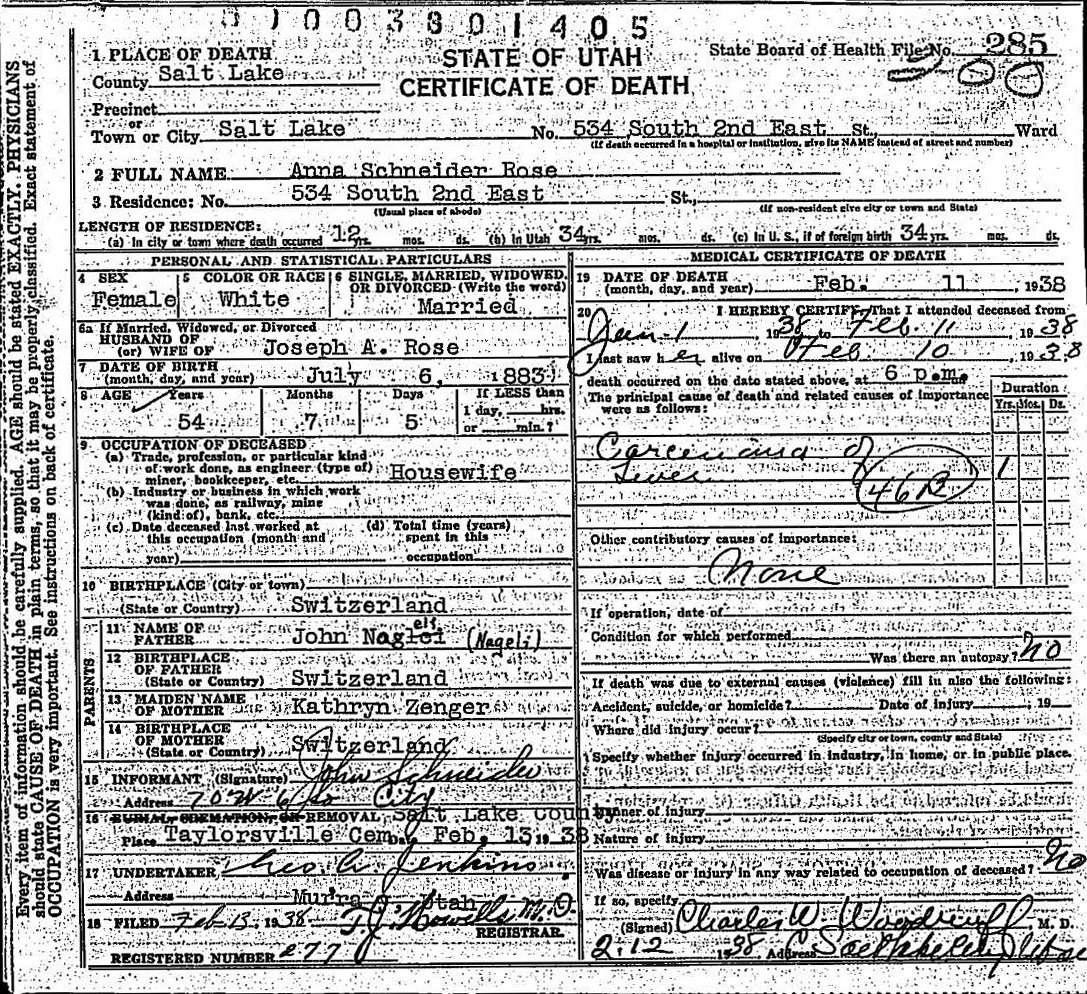 01003801405
STATE OF UTAH
CERTIFICATE OF DEATH
State Board of Health File No. 285
1 PLACE OF DEATH
County Salt Lake
Precinct
or
Town or City Salt Lake No. 534 South 2nd East St., Ward
(If death occurred in a hospital or institution, give its NAME instead of street and number)
2 FULL NAME Anna Schneider Rose
3 Residence: No. 534 South 2nd East St.,
(Usual place of abode) (If non-resident give city or town and State)
LENGTH OF RESIDENCE:
(a) In city or town where death occurred 12 yrs. mos. ds. (b) In Utah 34 yrs. mos. ds. (c) In U. S., if of foreign birth 34 yrs. mos. ds.
PERSONAL AND STATISTICAL PARTICULARS
4 SEX Female
5 COLOR OR RACE White
6 SINGLE, MARRIED, WIDOWED, OR DIVORCED (Write the word) Married
6a If Married, Widowed, or Divorced
HUSBAND OF
(or) WIFE OF Joseph A. Rose
7 DATE OF BIRTH
(month, day, and year) July 6, 1883
8 AGE Years Months Days If LESS than
1 day, hrs.
54 7 5 or min.?
9 OCCUPATION OF DECEASED
(a) Trade, profession, or particular kind
of work done, as engineer (type of)
miner, bookkeeper, etc. Housewife
(b) Industry or business in which work
was done, as railway, mine
(kind of), bank, etc.
(c) Date deceased last worked at
this occupation (month and
year)
(d) Total time (years)
spent in this
occupation
10 BIRTHPLACE (City or town)
(State or Country) Switzerland
PARENTS
11 NAME OF
FATHER John Naglei eli (Nageli)
12 BIRTHPLACE
OF FATHER
(State or Country) Switzerland
13 MAIDEN NAME
OF MOTHER Kathryn Zenger
14 BIRTHPLACE
OF MOTHER
(State or Country) Switzerland
15 INFORMANT (Signature) John Schneider
Address 70 W 6 So City
16 BURIAL, CREMATION, OR REMOVAL Salt Lake County
Place Taylorsville Cem Date Feb. 13, 1938
17 UNDERTAKER Geo. A. Jenkins
Address Murray Utah
18 FILED Feb 13, 1938 T. J. Howells M.D.
REGISTRAR.
REGISTERED NUMBER 277
MEDICAL CERTIFICATE OF DEATH
19 DATE OF DEATH
(month, day, and year) Feb. 11, 1938
20 I HEREBY CERTIFY, That I attended deceased from
Jan. 1 1938 to Feb. 11, 1938
I last saw her alive on Feb 10, 1938
death occurred on the date stated above, at 6 p.m.
The principal cause of death and related causes of importance
were as follows:
Duration
Yrs. Mos. Ds.
Carcenoma of
Liver 1
46B
Other contributory causes of importance:
None
If operation, date of
Condition for which performed
Was there an autopsy? No
If death was due to external causes (violence) fill in also the following:
Accident, suicide, or homicide? Date of injury , 19
Where did injury occur?
(Specify city or town, county and State)
Specify whether injury occurred in industry, in home, or in public place.
Manner of injury
Nature of injury
Was disease or injury in any way related to occupation of deceased? No
If so, specify
(Signed) Charles W. Woodruff M. D.
2-12 1938 Address Salt Lake City Utah
Every item of information should be carefully supplied. AGE should be stated EXACTLY. PHYSICIANS
should state CAUSE OF DEATH in plain terms, so that it may be properly classified. Exact statement of
OCCUPATION is very important. See instructions on back of certificate.